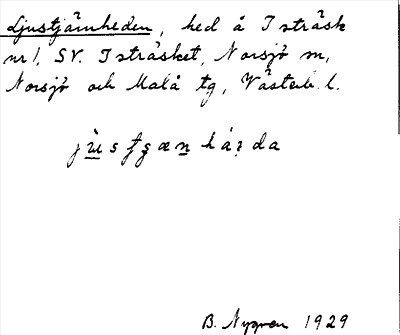 Ljustjärnheden, hed å Isträsk
nr 1, SV. Isträsket, Norsjö sn,
Norsjö och Malå tg, Västerb. l.
B. Nygren 1929